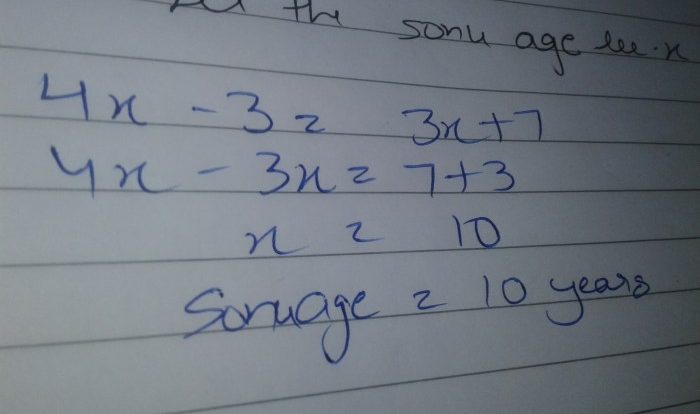 the sonu age be x
4x - 3 = 3x + 7
4x - 3x = 7 + 3
x = 10
Sonu age = 10 years